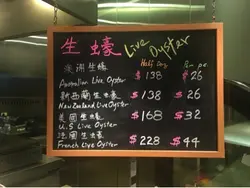 生 蠔 Live Oyster
Half Doz. Per pc.
澳洲生蠔 $138 $26
Australian Live Oyster
新西蘭生蠔 $138 $26
New Zealand Live Oyster
美國生蠔 $168 $32
U.S Live Oyster
法國生蠔 $228 $44
French Live Oyster